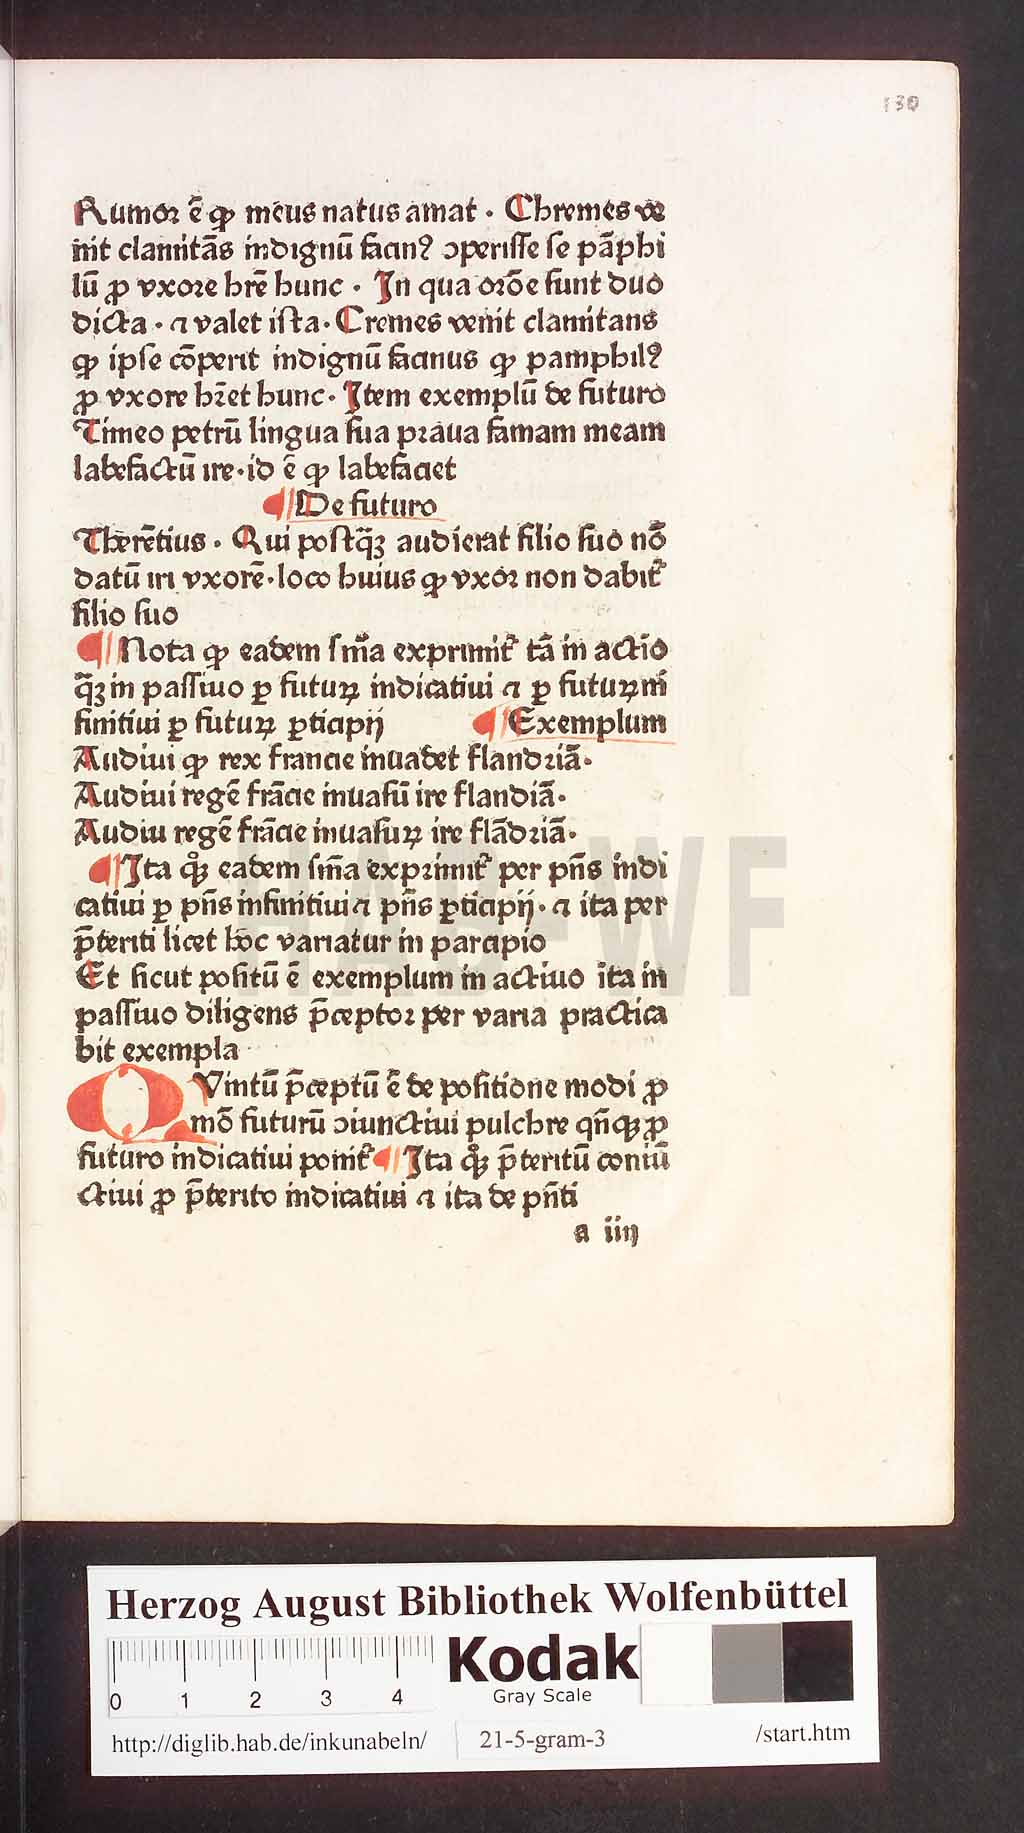 130
Rumoꝛ ē ꝙ meus natus amat · Chremes ve
nit clamitās indignū facinꝰ ꝯperisse se pāphi
lū ꝓ vxoꝛe hr̄e hunc · In qua oꝛōe sunt duo
dicta · ⁊ valet ista · Cremes venit clamitans
ꝙ ipse cōperit indignū facinus ꝙ pamphilꝰ
ꝓ vxore hꝛ̄et hunc · Item exemplū de futuro
Timeo petrū lingua sua pꝛaua famam meam
labefactū ire · id ē ꝙ labefaciet
¶ De futuro
Therētius · Qui postq̄ꝫ audierat filio suo nō
datū iri vxorē · loco huius ꝙ vxoꝛ non dabit᷑
filio suo
¶ Nota ꝙ eadem sm̄a exprimit᷑ tā in actīo
q̄ꝫ in passiuo ꝑ futuꝝ indicatiui ⁊ ꝑ futuꝝ in
finitiui ꝑ futuꝝ ꝑticipij ¶ Exemplum
Audiui ꝙ rex francie inuadet flandꝛiā ·
Audiui regē frācie inuasū ire flandiā ·
Audiu regē frācie inuasuꝝ ire flādꝛiā ·
¶ Ita qͦꝫ eadem sm̄a expꝛimit᷑ per pn̄s indi
catiui ꝑ pn̄s infinitiui ⁊ pn̄s ꝑticipij · ⁊ ita per
p̄teriti licet hoc variatur in parcipio
Et sicut positū ē exemplum in actiuo ita in
passiuo diligens p̄ceptoꝛ per varia practica
bit exempla
QVintū p̄ceptū ē de positione modi ꝓ
mō futurū ꝯiunctiui pulchre qn̄qꝫ ꝓ
futuro indicatiui ponit᷑ ¶ Ita qͦꝫ p̄teritū coniū
ctiui ꝓ p̄terito indicatiui ⁊ ita de pn̄ti
a iiij
HAB-WF
Herzog August Bibliothek Wolfenbüttel
0 1 2 3 4
Kodak
Gray Scale
http://diglib.hab.de/inkunabeln/ 21-5-gram-3 /start.htm